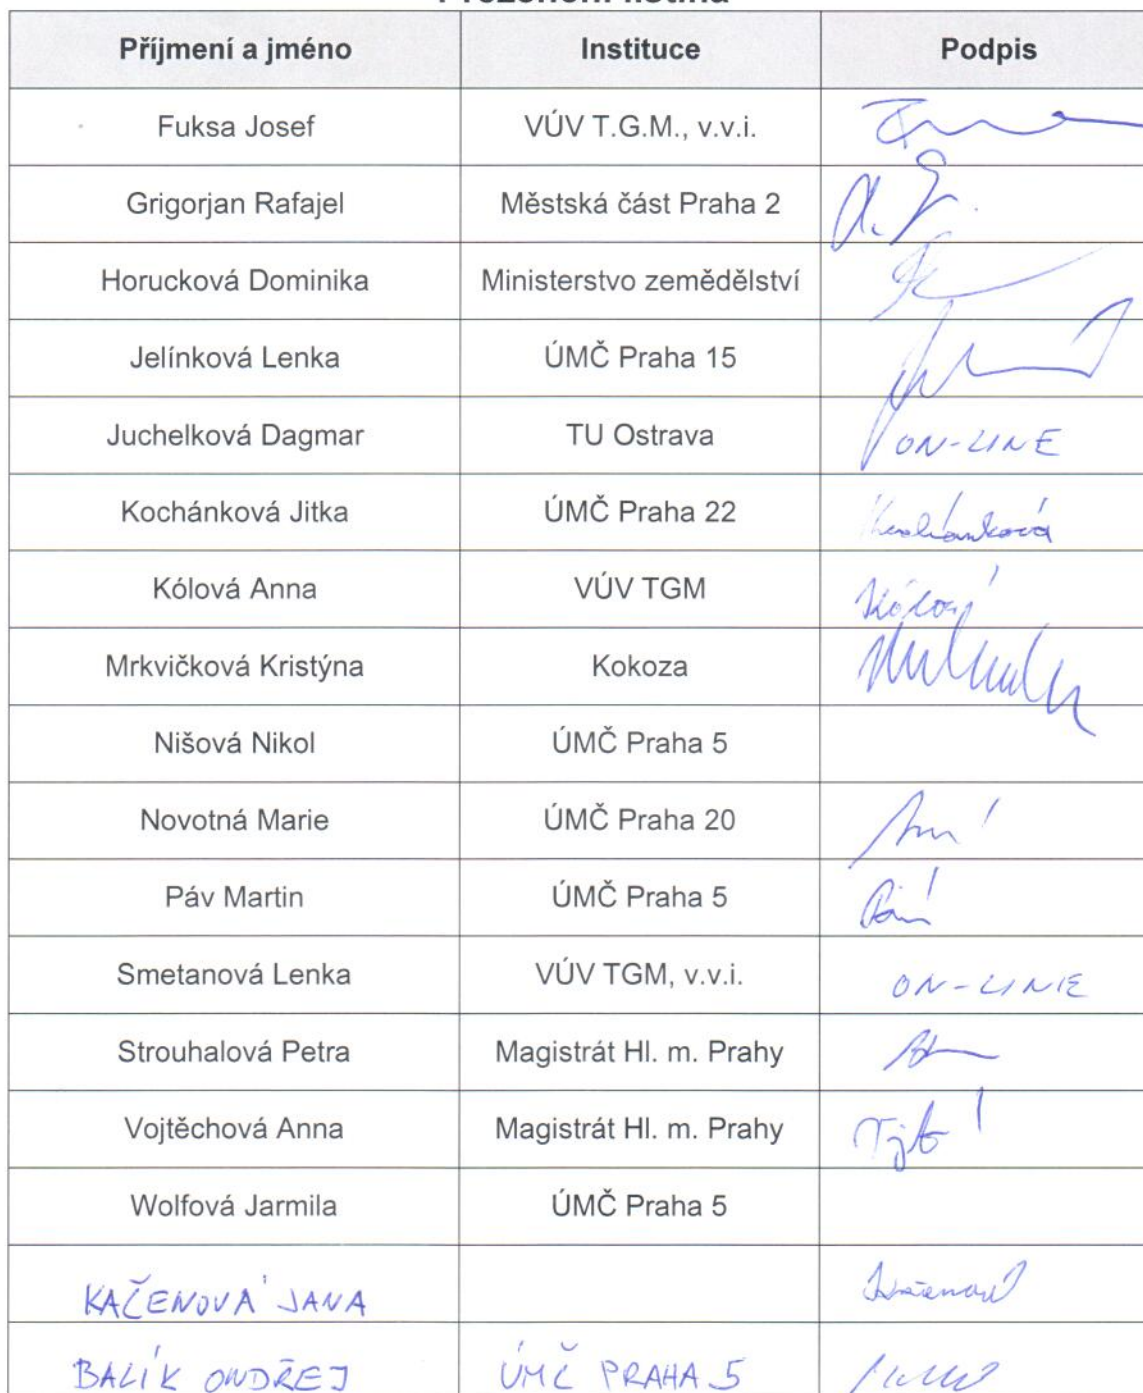 Prezenční listina
Příjmení a jméno Instituce Podpis
Fuksa Josef VÚV T.G.M., v.v.i.
Grigorjan Rafajel Městská část Praha 2
Horucková Dominika Ministerstvo zemědělství
Jelínková Lenka ÚMČ Praha 15
Juchelková Dagmar TU Ostrava ON-LINE
Kochánková Jitka ÚMČ Praha 22 Kochánková
Kólová Anna VÚV TGM Kólová
Mrkvičková Kristýna Kokoza
Nišová Nikol ÚMČ Praha 5
Novotná Marie ÚMČ Praha 20
Páv Martin ÚMČ Praha 5
Smetanová Lenka VÚV TGM, v.v.i. ON-LINE
Strouhalová Petra Magistrát Hl. m. Prahy
Vojtěchová Anna Magistrát Hl. m. Prahy
Wolfová Jarmila ÚMČ Praha 5
KAČENOVÁ JANA
BALÍK ONDŘEJ ÚMČ PRAHA 5